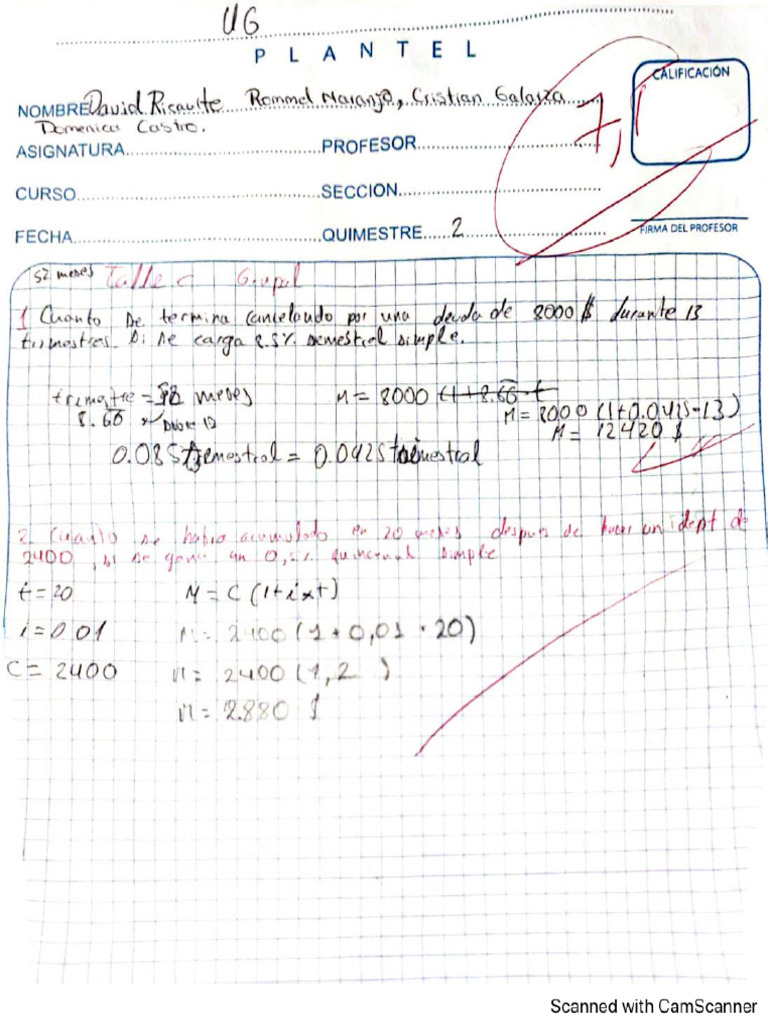 UG
PLANTEL
CALIFICACIÓN
7,1
NOMBRE David Ricaurte Rommel Naranjo, Cristian Galarza
Domenica Castro.
ASIGNATURA PROFESOR
CURSO SECCION
FECHA QUIMESTRE 2
FIRMA DEL PROFESOR
52 meses Taller Grupal
1 Cuanto se termina cancelando por una deuda de 8000 $ durante 13
trimestres si se carga 8.5% semestral simple.
meses M = 8000 (1+8.66 t
8.66 M = 8000 (1+0.0425-13)
M = 12420 $
0.085 semestral = 0.0425 trimestral
2. Cuanto se habia acumulado en 20 meses despues de hacer un de
2400, si se gana un quincenal simple
t = 20 M = C (1+i×t)
i = 0.01 M = 2400 (1 + 0,01 · 20)
C = 2400 M = 2400 (1,2 )
M = 2.880 $
Scanned with CamScanner